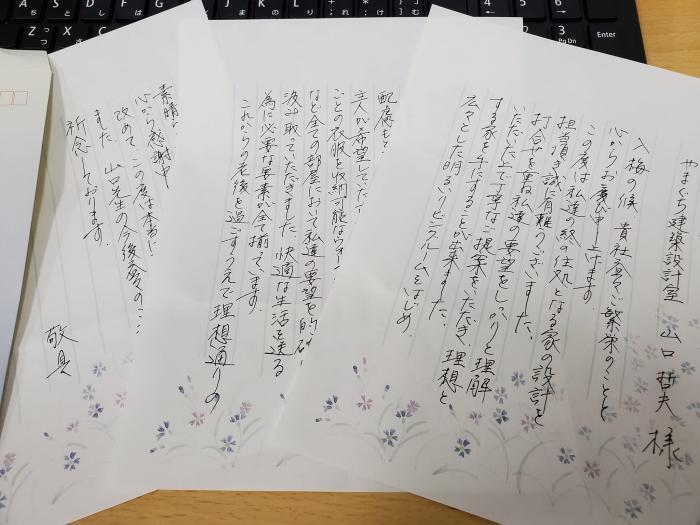 やまぐち建築設計室 山口哲夫様
入梅の候 貴社益々ご繁栄のことと
心からお慶び申し上げます。
この度は私達の終の住処となる家の設計を
担当頂き誠に有難うございました。
打合せを重ね私達の要望をしっかりと理解
いただいた上で丁寧なご提案をいただき、理想と
する家を手にすることが出来ました。
広々とした明るいリビングルームをはじめ、
配慮も
主人が希望していた
ごとの衣服を収納可能なウォー
など全ての部屋において私達の要望を的確
汲み取っていただきました。快適な生活を送る
為に必要な要素が全て揃っています。
これからの老後を過ごすうえで理想通りの
素晴
心から感謝申
改めて この度は本当に
ました。山口先生の今後益々のご
祈念しております。
敬具
Enter
PgDn
End